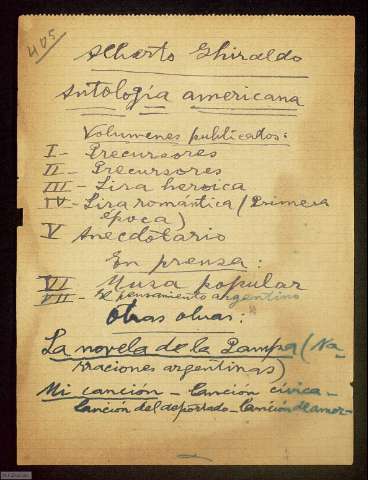 405
Alberto Ghiraldo
Antología americana
Volumenes publicados:
I - Precursores
II - Precursores
III - Lira heroica
IV - Lira romántica (Primera
época)
V Anecdotario
En prensa:
VI - Musa popular
VII - El pensamiento argentino
Otras obras:
La novela de la Pampa (Na-
rraciones argentinas)
Mi canción - Canción cívica -
Canción del deportado - Canción de amor -